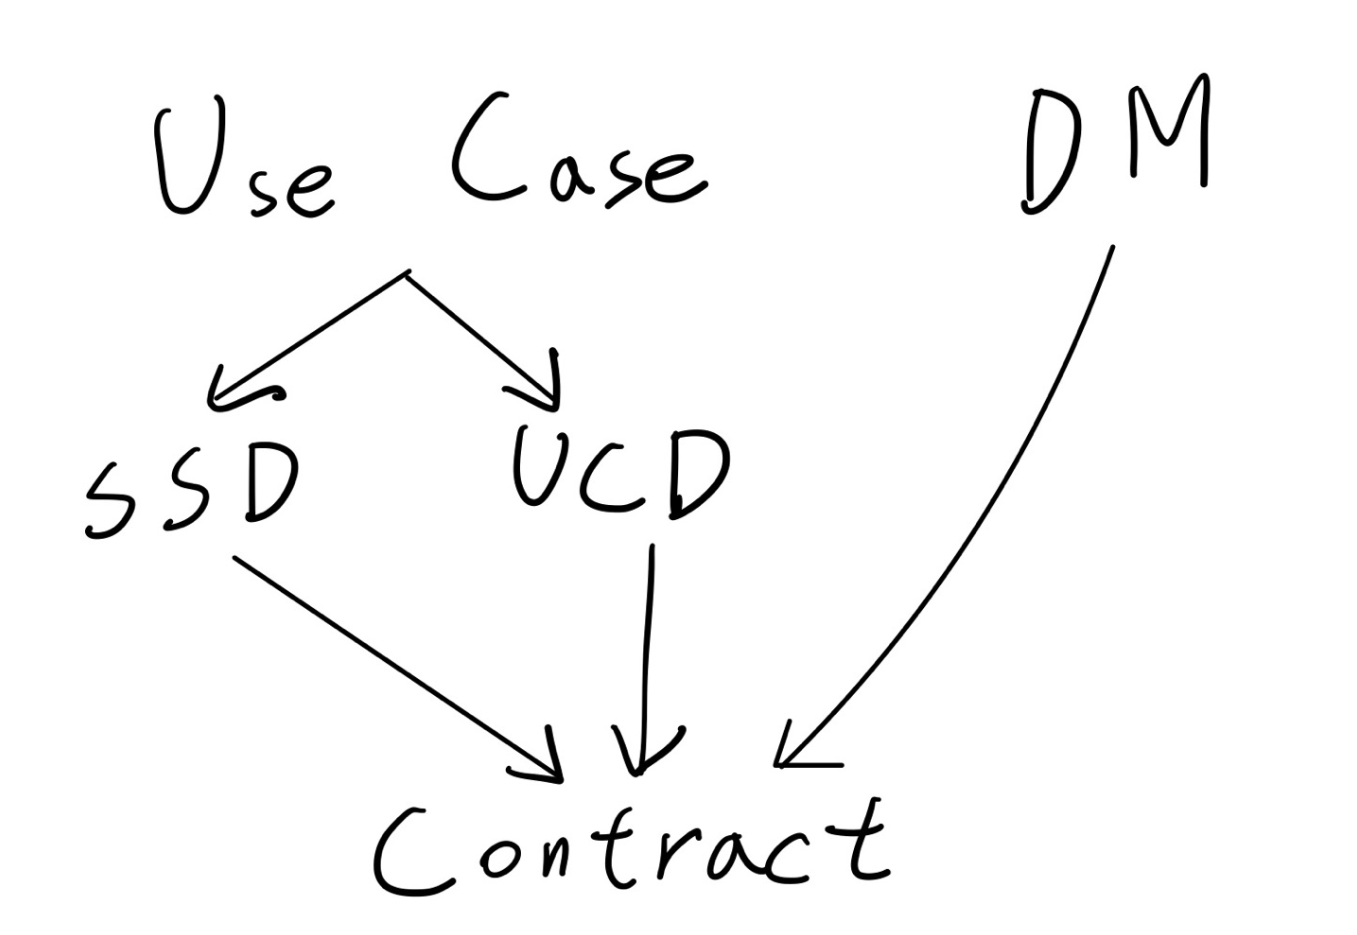 Use Case DM
SSD UCD
Contract